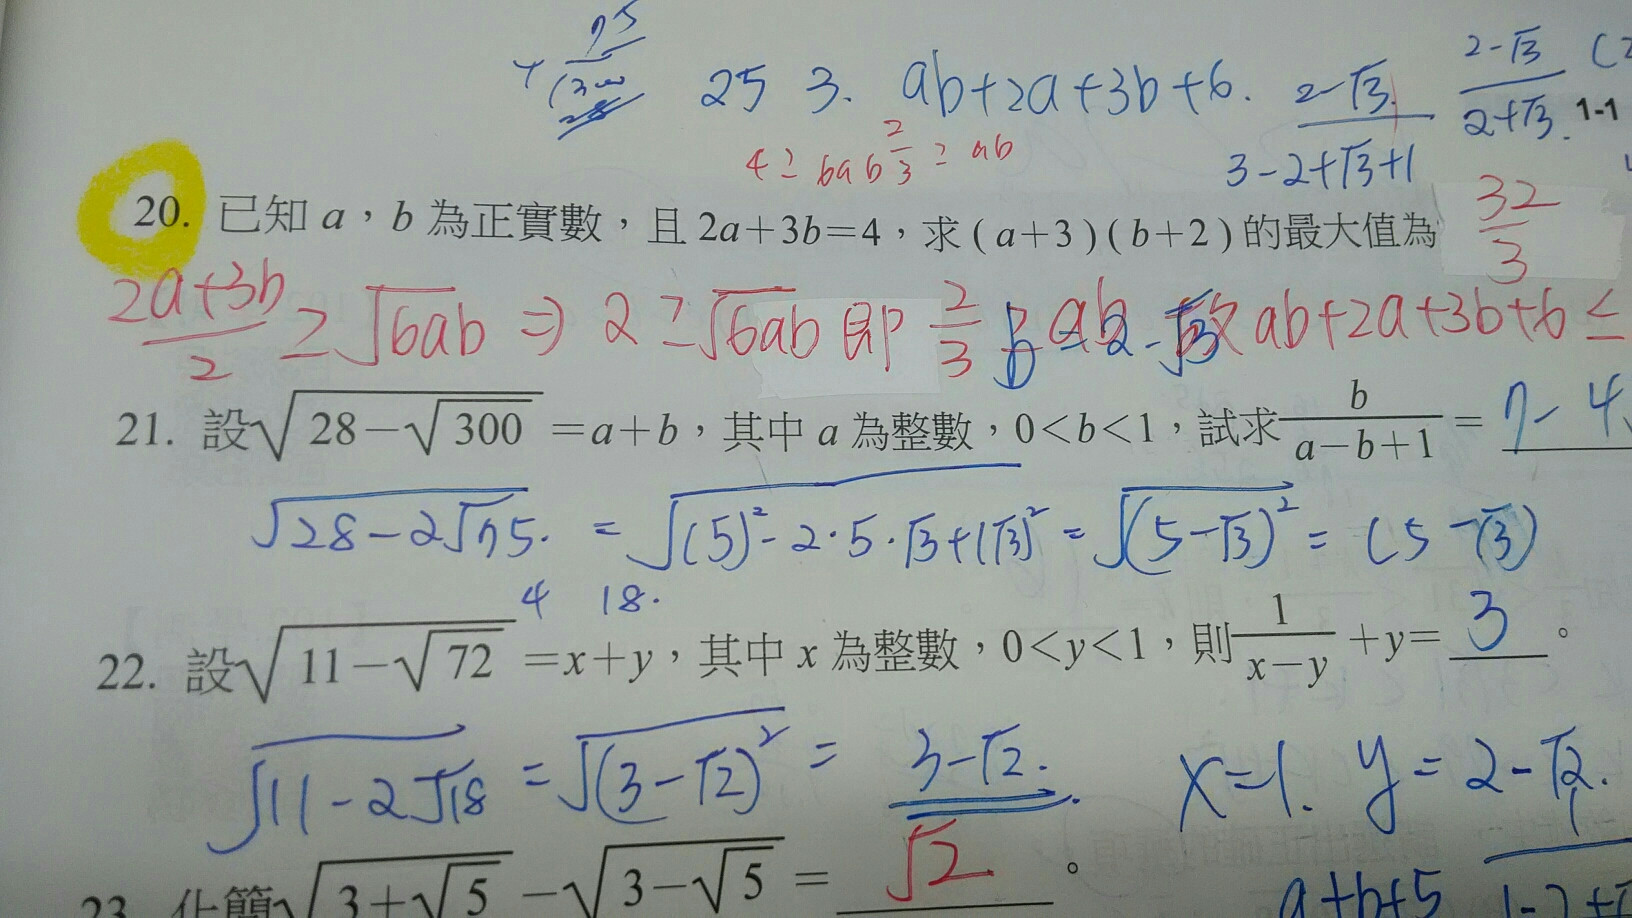 25 3. ab+2a+3b+6. 2-√3 / 3-2+√3+1 2-√3 / 2+√3. 1-1
4≥6ab 2/3≥ab
20. 已知 a,b 為正實數,且 2a+3b=4,求 (a+3)(b+2) 的最大值為 32/3
(2a+3b)/2 ≥ √6ab ⇒ 2≥√6ab 即 2/3 ab 故 ab+2a+3b+6≤
21. 設√(28-√300) =a+b,其中 a 為整數,0<b<1,試求 b/(a-b+1) = 7-4
√(28-2√75). = √((5)²-2·5·√3+(√3)²) = √((5-√3)²) = (5-√3)
4 18.
22. 設√(11-√72) =x+y,其中 x 為整數,0<y<1,則 1/(x-y) +y= 3 。
√(11-2√18) = √((3-√2)²) = 3-√2. x=1. y=2-√2.
23. 化簡√(3+√5) -√(3-√5) = √2 。
a+b+5